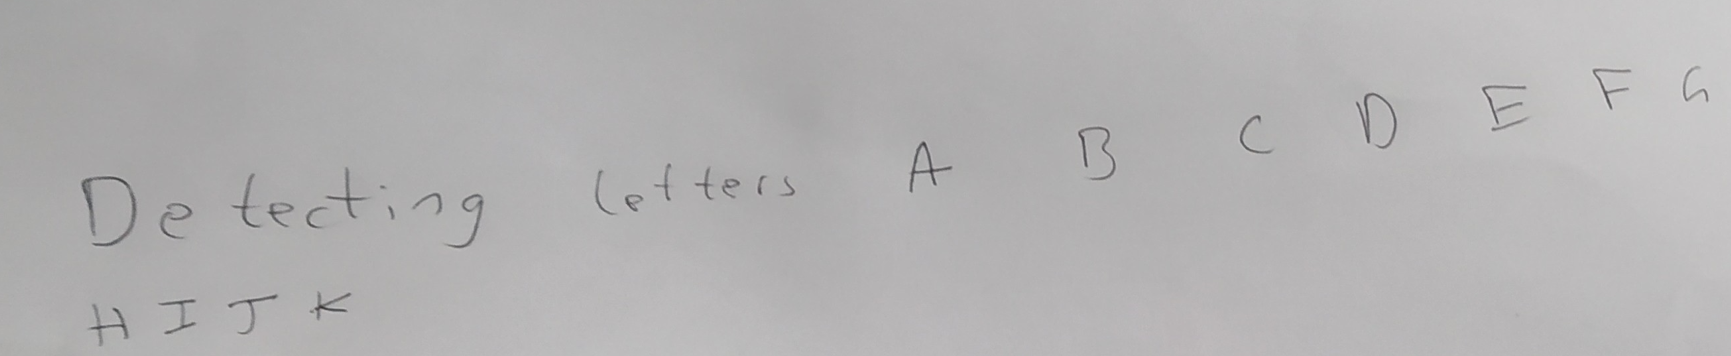 Detecting letters A B C D E F G
H I J K